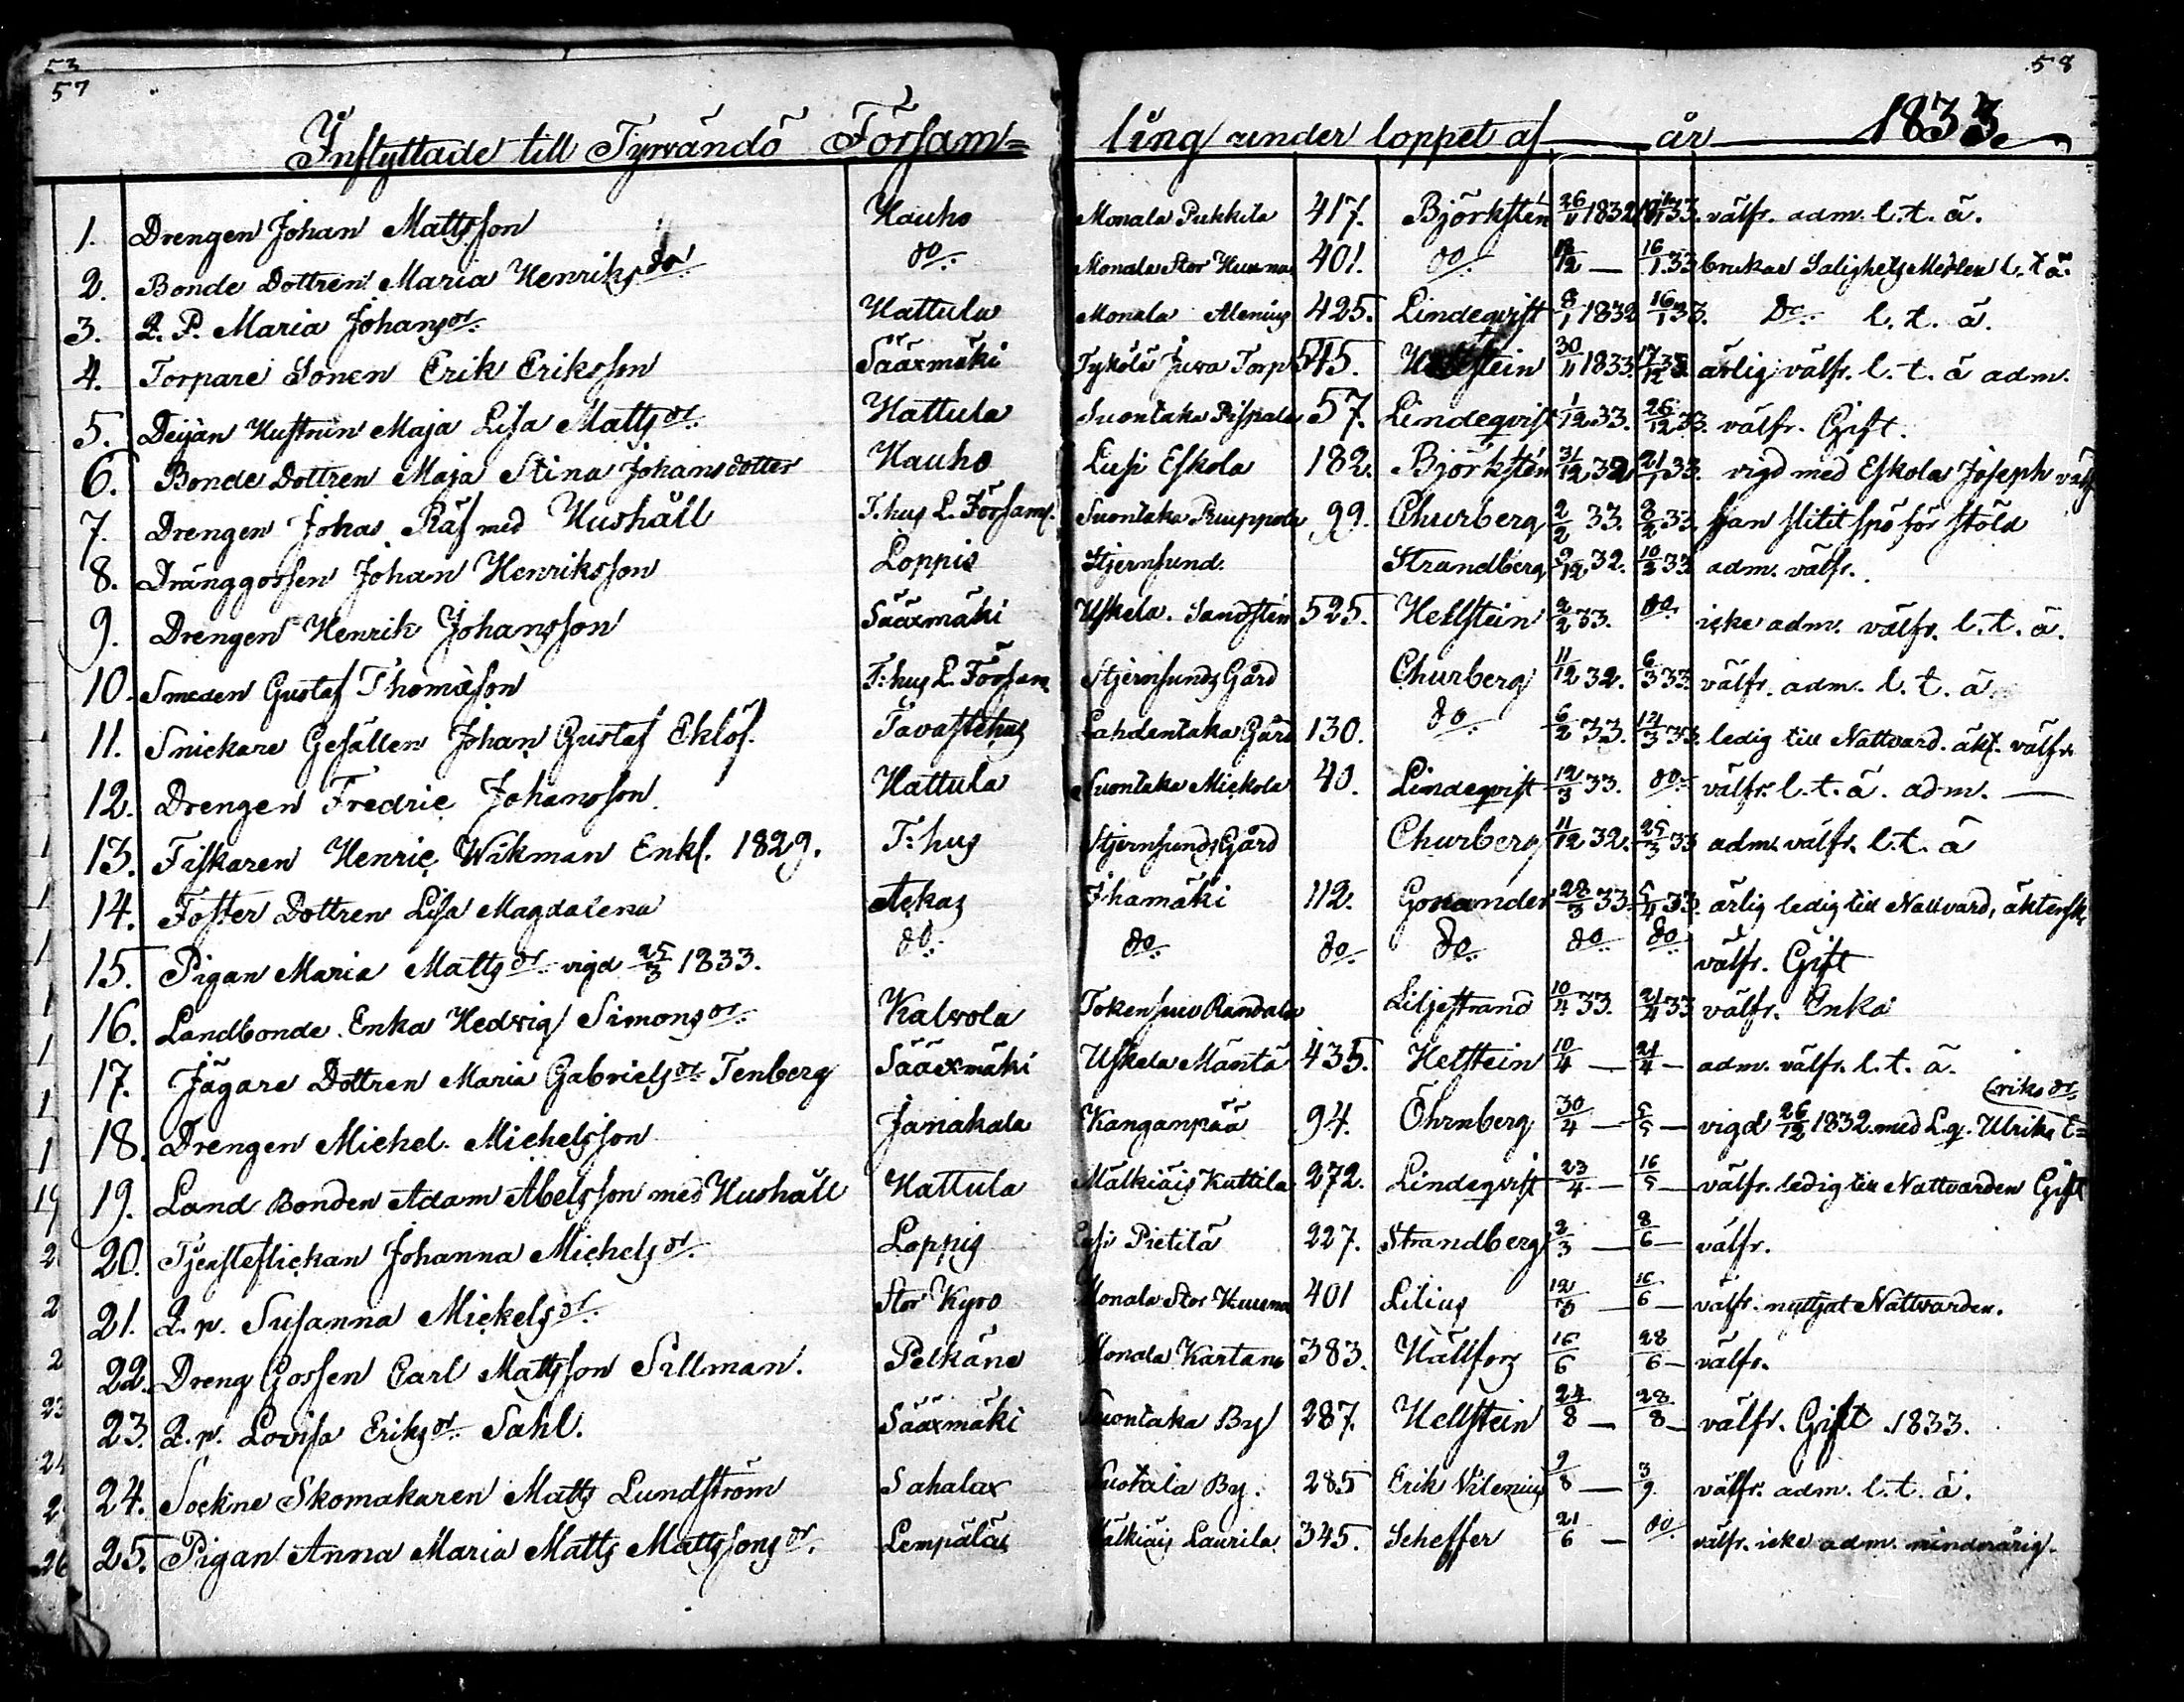 53
57
58
Inflyttade till Tyrvändö Församling under loppet af år 1833.
1. Drengen Johan Mattsson Hauho Monala Pukkila 417. Björkstén 26/11 1832 33. välfr. adm. l. t. ä.
2. Bonde Dottren Maria Henriksdr do Monala Stor Huuna 401. do 12 — 16/1 33 brukar Salighets Medlen l. t. ä.
3. Q. P. Maria Johansdr. Hattula Monala Alenius 425. Lindeqvist 8/1 1832 16/1 33. Do l. t. ä.
4. Torpare Sonen Erik Eriksson Sääxmäki Tykölä Juva Torp 545. Hellstein 30/11 1833. 17/12 33. ärlig välfr. l. t. ä adm.
5. Dejan Hustrun Maja Lisa Mattsdr. Hattula Suontaka Pispala 57. Lindeqvist 1/12 33. 26/12 33. välfr. Gift.
6. Bonde Dottren Maja Stina Johansdotter Hauho Lusi Eskola 182. Björkstén 31/12 32 21/1 33. vigd med Eskola Joseph välf
7. Drengen Johas Räf med Hushåll T. hus L. Församl. Suontaka Pruppola 99. Churberg 2/2 33. 8/2 33. han slitit spö för stöld
8. Dränggossen Johan Henriksson Loppis Stjernsund. Strandberg 9/12 32. 10/2 33 adm. välfr.
9. Drengen Henrik Johansson Sääxmäki Uskela Sandsten 525. Hellstein 2/2 33. do icke adm. välfr. l. t. ä.
10. Smeden Gustaf Thomasson T: hus L. Försam Stjernsunds Gård Churberg 11/12 32. 6/3 33. välfr. adm. l. t. ä.
11. Snickare Gesällen Johan Gustaf Eklöf. Tavastehus Lahdentaka Gård 130. do 6/2 33. 12/3 33. ledig till Nattvard. äkt. välfr.
12. Drengen Fredric Johansson. Hattula Suontaka Mickola 40. Lindeqvist 12/3 33. do välfr. l. t. ä. adm. —
13. Fiskaren Henric Wikman Enkl. 1829. T: hus Stjernsunds Gård Churberg 11/12 32. 25/3 33 adm. välfr. l. t. ä
14. Foster Dottren Lisa Magdalena Ackas Ihamäki 112. Gonander 28/3 33. 5/4 33. ärlig ledig till Nattvard, äktensk.
15. Pigan Maria Mattsdr. vigd 25/3 1833. do do do do do do välfr. Gift
16. Landbonde Enka Hedvig Simonsdr. Kalvola Liljestrand 10/4 33. 21/4 33 välfr. Enka
17. Jägare Dottren Maria Gabrielsdr. Tenberg Sääxmäki Uskela Mäntä 435. Hellstein 10/4 — 21/4 — adm. välfr. l. t. ä.
18. Drengen Michel Michelsson Janakala Kanganpää 94. Öhrnberg 30/4 — 5/5 — vigd 26/12 1832 med L.q. Ulrika E=
riksdr.
19. Land Bonden Adam Abelsson med Hushåll Hattula Mälkiäis Kuttila 272. Lindeqvist 23/4 — 16/5 — välfr. ledig till Nattvarden Gift
20. Tjensteflickan Johanna Michelsdr. Loppis Lusi Pietilä 227. Strandberg 2/3 — 8/6 — välfr.
21. Q. p. Susanna Mickelsdr. Stor Kyro Monala Stor Huuna 401 Lilius 12/3 — 16/6 — välfr. nyttjat Nattvarden.
22. Dreng Gossen Carl Mattsson Sillman. Pelkäne Monala Kartano 383. Hällfors 16/6 28/6 — välfr.
23. Q. p. Lovisa Eriksdr. Sahl. Sääxmäki Suontaka By 287. Hellstein 24/8 — 28/8 — välfr. Gift 1833.
24. Sockne Skomakaren Matts Lundström Sahalax By. 285 Erik Vilenius 9/8 — 3/9. välfr. adm. l. t. ä.
25. Pigan Anna Maria Matts Mattssonsdr. Lempälä Mälkiäis Laurila 345. Scheffer 21/6 — do välfr. icke adm. mindreårig.